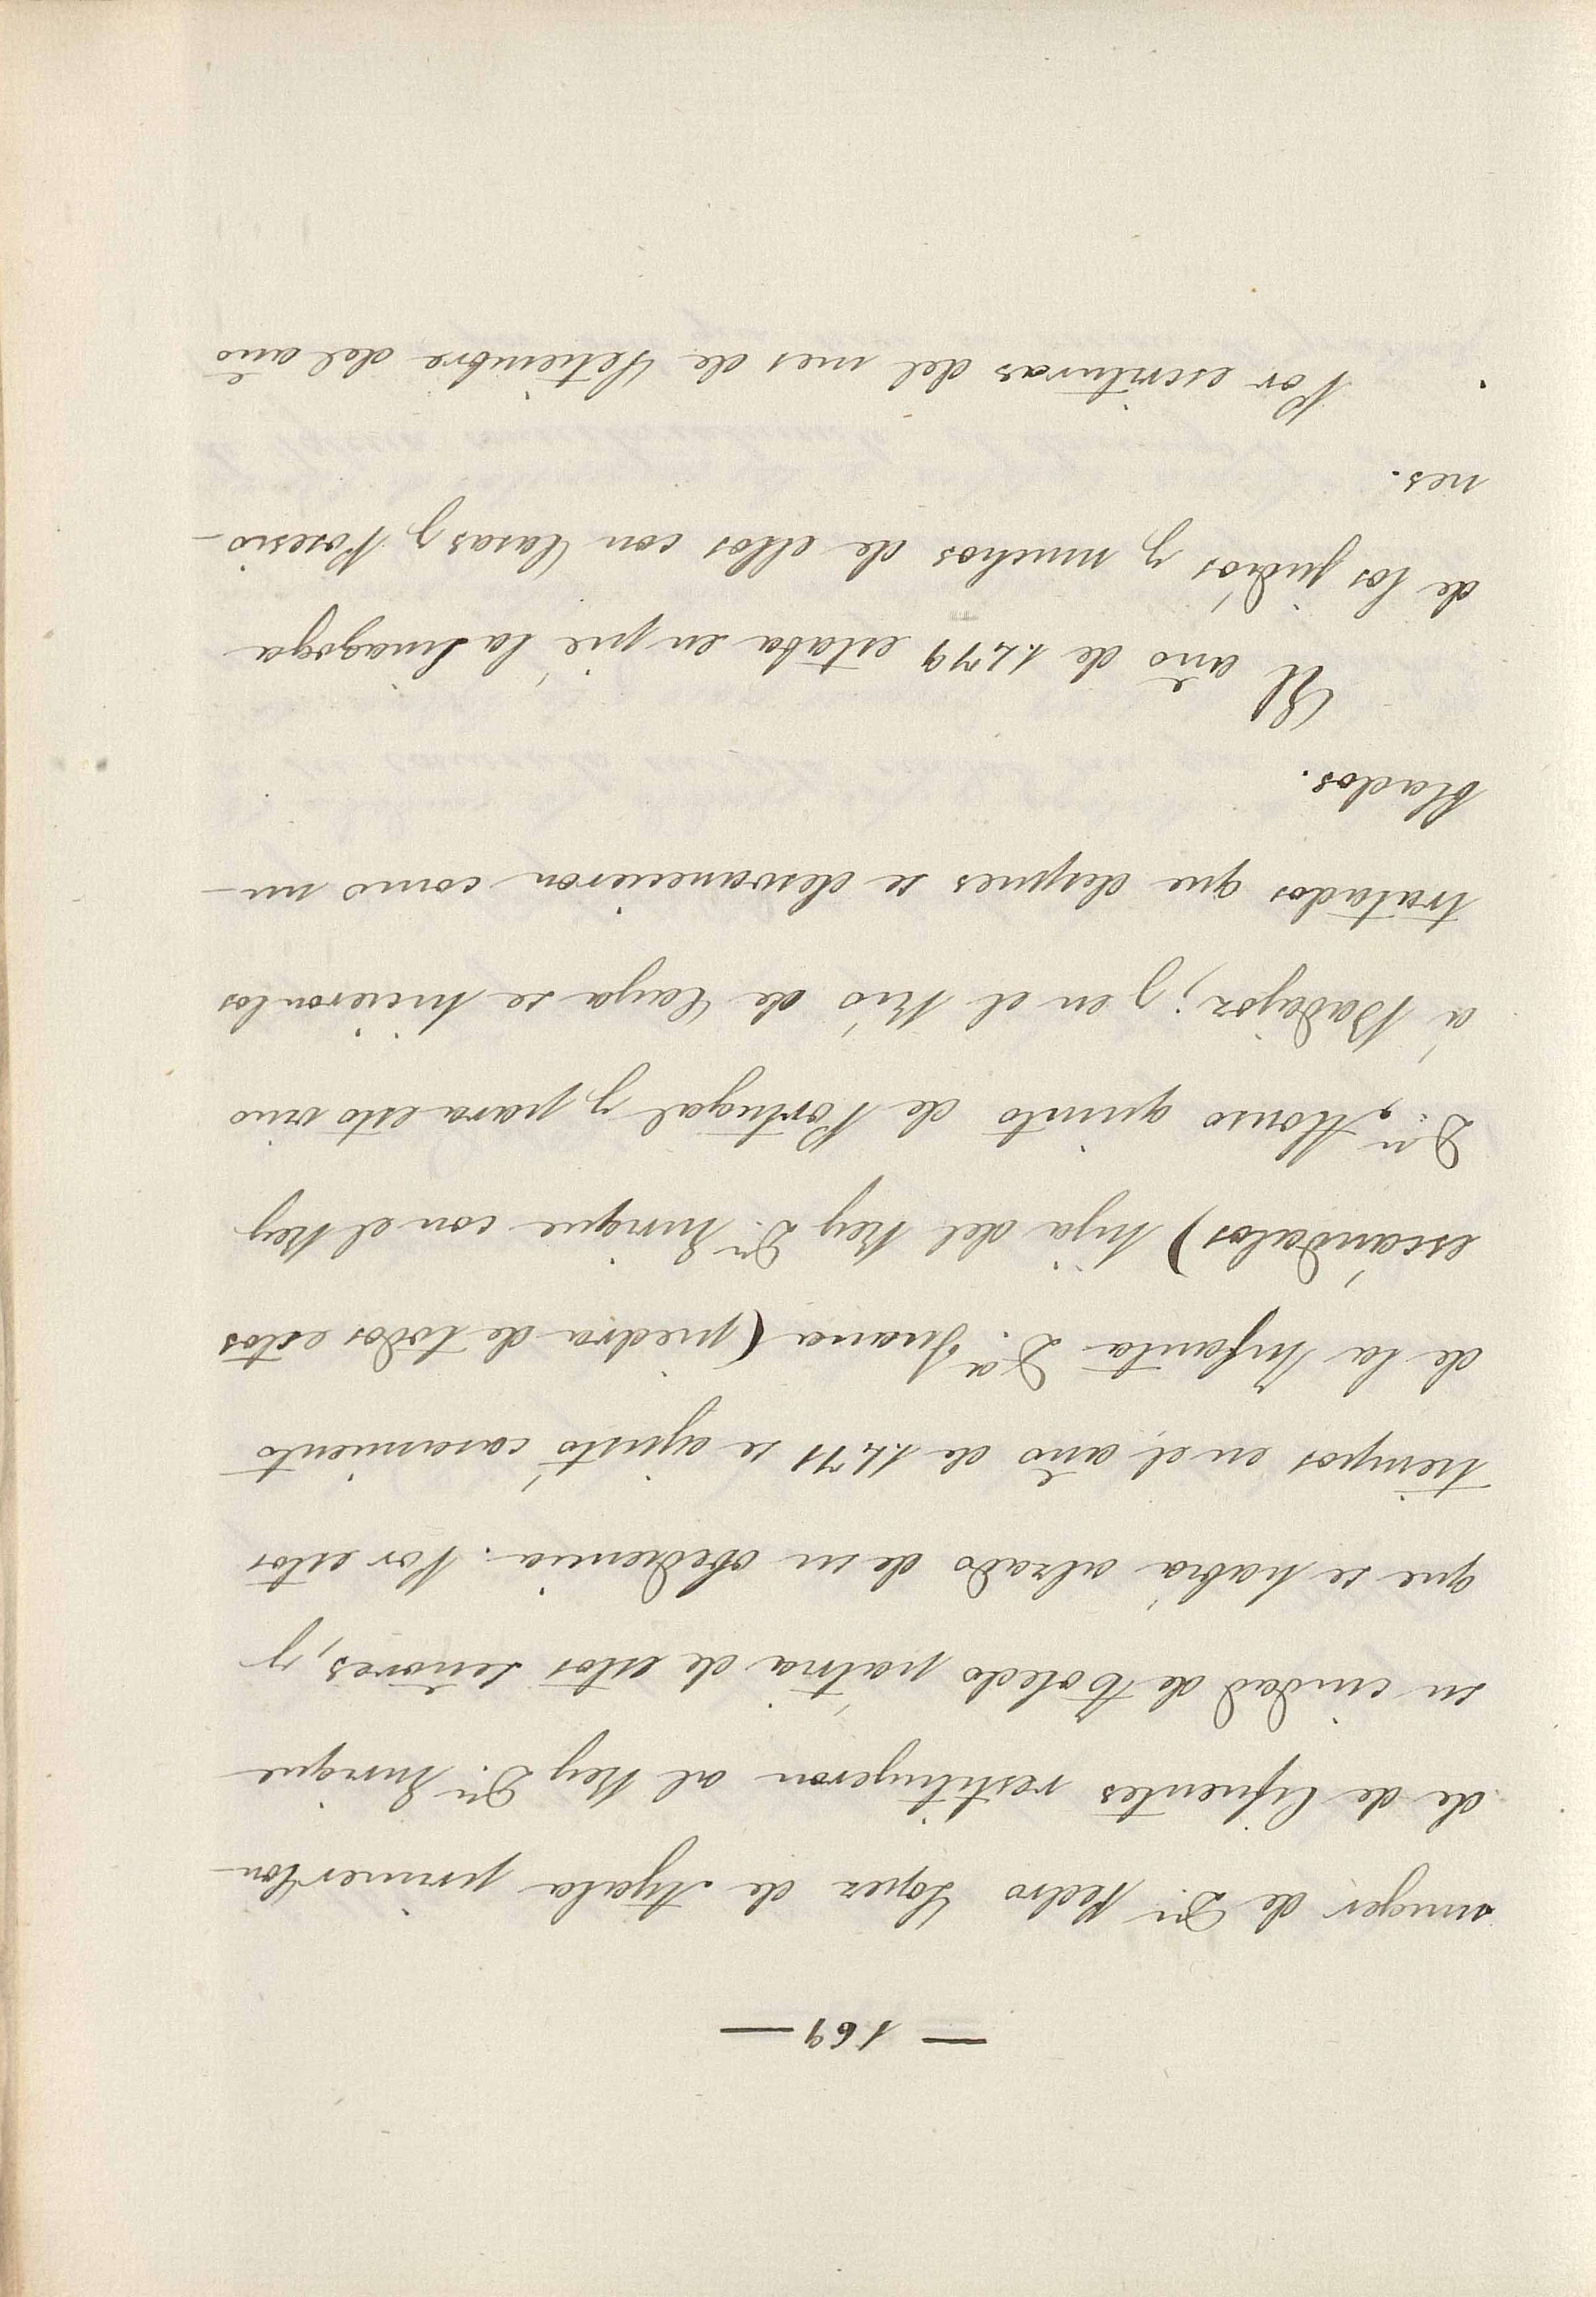 — 169 —
muger de Dn. Pedro Lopez de Ayala primer Con-
de de Cifuentes restituyeron al Rey Dn. Enrique
su ciudad de Toledo patria de estos señores, y
que se habia alzado de su obediencia. Por estos
tiempos en el año de 1471 se ajustó casamiento
de la Infanta Da. Juana (piedra de todos estos
escándalos) hija del Rey Dn. Enrique con el Rey
Dn. Alonso quinto de Portugal y para esto vino
á Badajoz; y en el Rio de Caya se hicieron los
tratados que despues se desvanecieron como nu-
blados.
El año de 1479 estaba en pié la Sinagoga
de los judíos y muchos de ellos con Casas y Posesio-
nes.
Por escrituras del mes de Setiembre del año